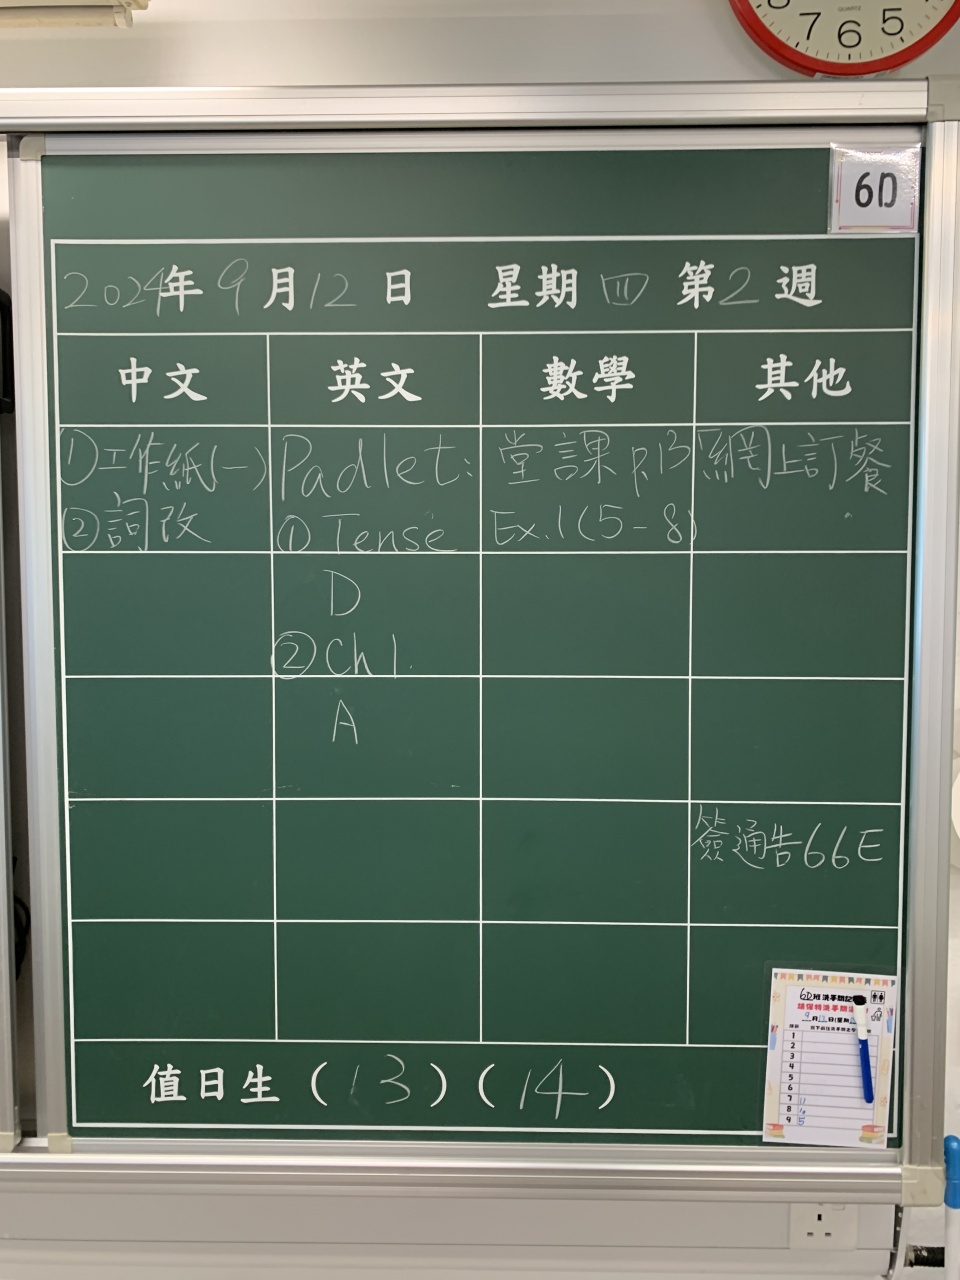 QUARTZ
7 6 5
6D
2024年9月12日 星期四 第2週
中文 英文 數學 其他
①工作紙(一) Padlet: 堂課 p.13 網上訂餐
②詞改 ① Tense Ex.1(5-8)
D
② Ch 1.
A
簽通告66E
6D班洗手間記
9月12日(星期
1
2
3
4
5
6
7 11
8
9 5
值日生(13)(14)